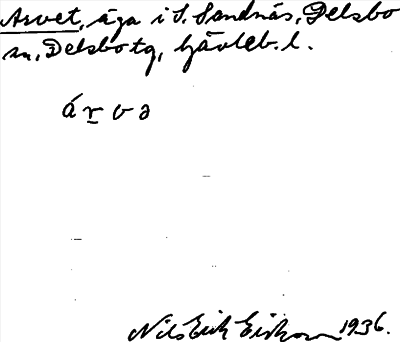 Arvet, äga i S. Sandnäs, Delsbo
sn, Delsbo tg, Gävleb. l.
árvə
Nils Erik Eriksson 1936.